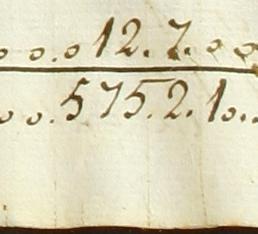 o o . o 12. 7. o o
o o . 575. 2. 10.